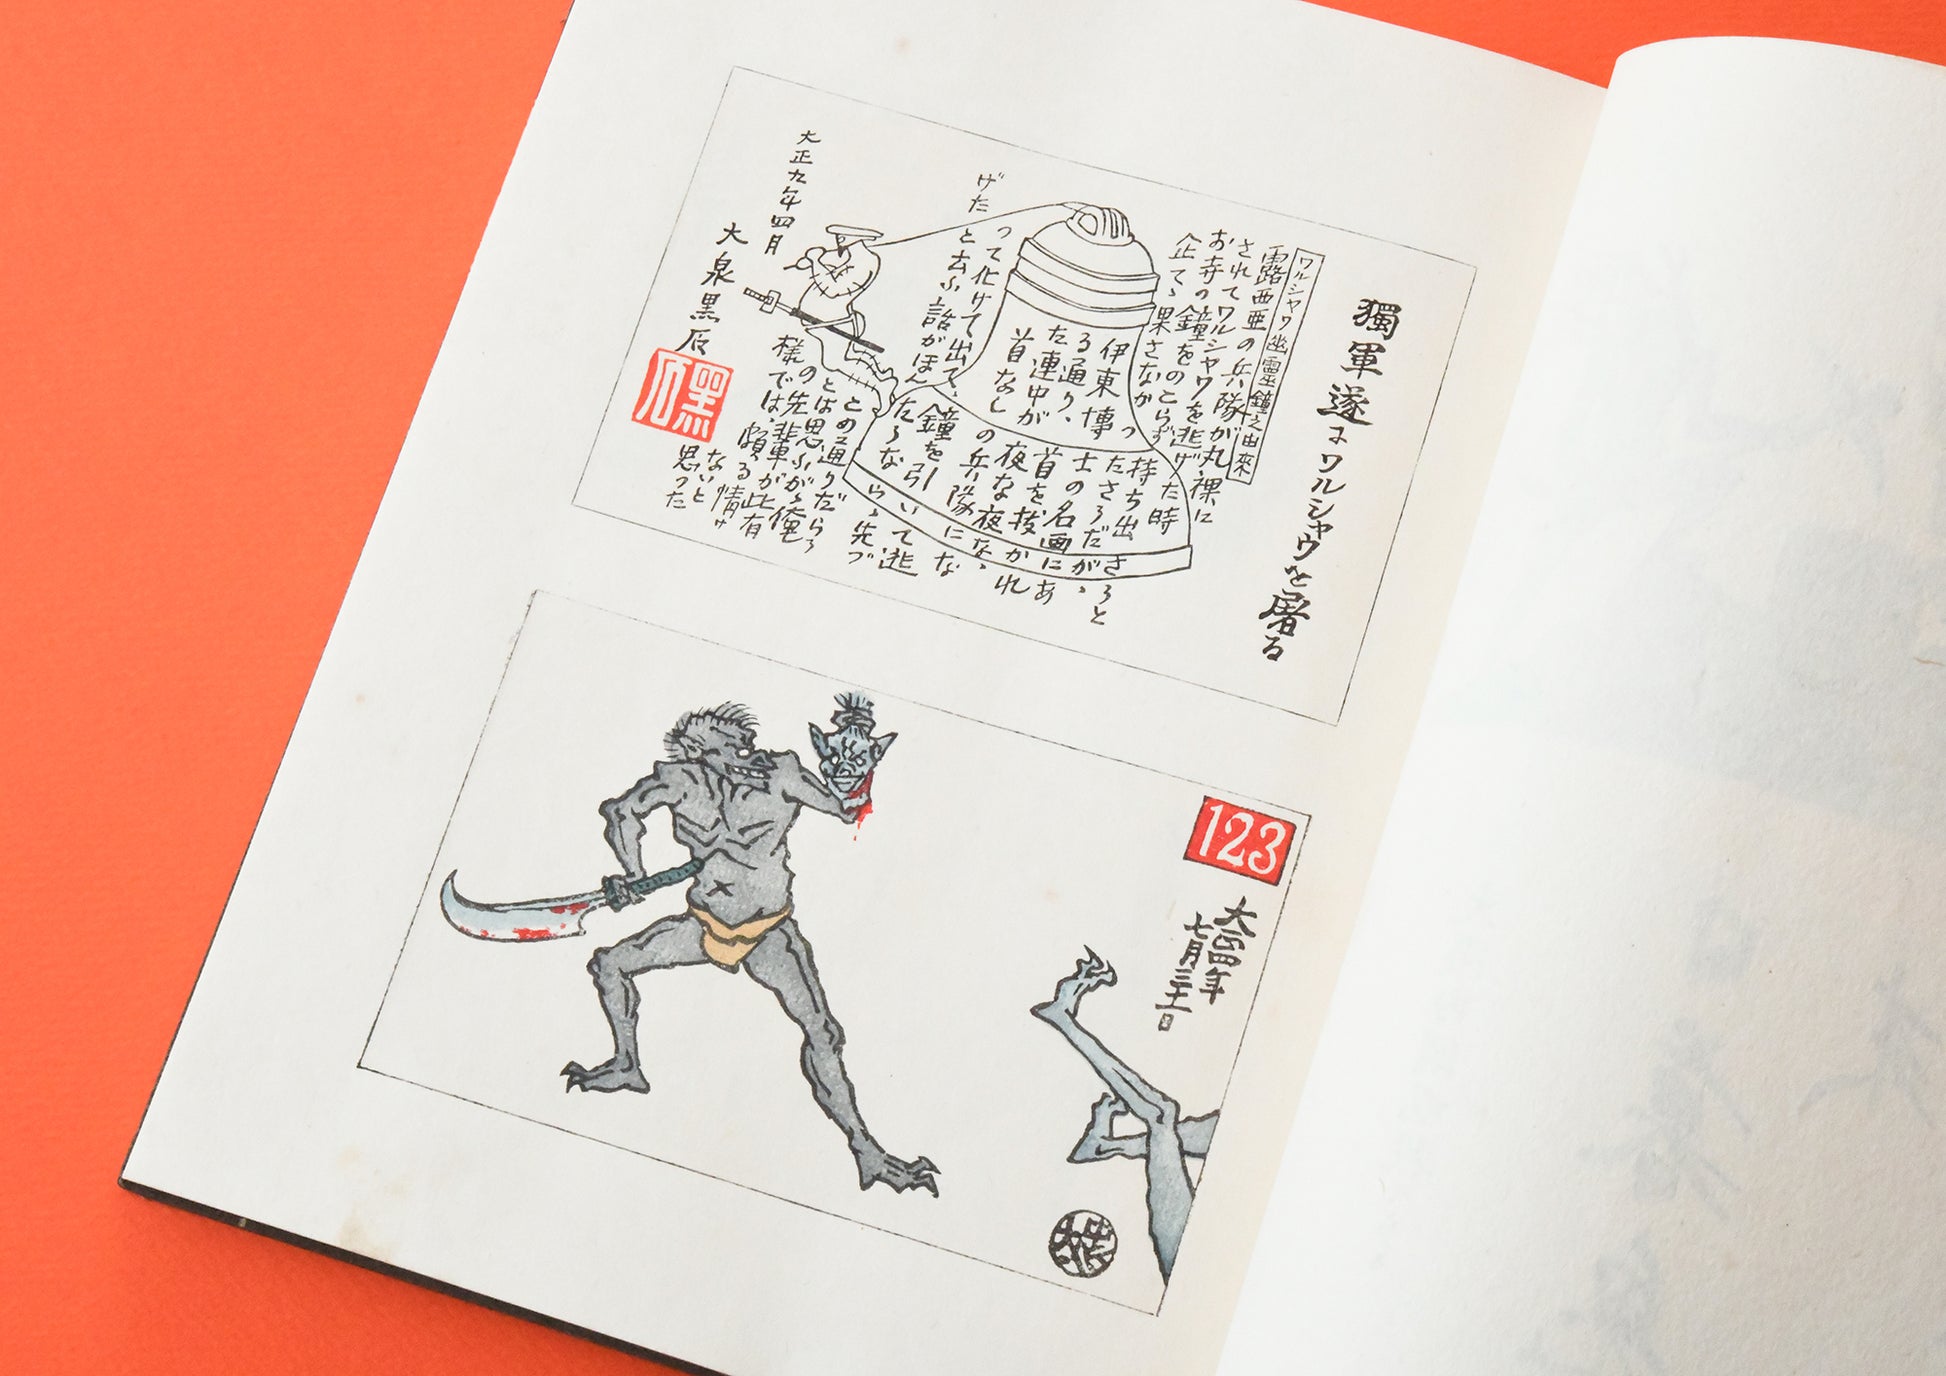 獨軍遂にワルシャウを屠る
ワルシャワ幽靈鐘之由來
露西亜の兵隊が丸裸に
されてワルシャワを逃げた時
お寺の鐘をのこらず持ち出さうと
企てゝ果さなかつたさうだが、
伊東博士の名画にあ
る通り、首を拔かれ
た連中が夜な夜な、
首なしの兵隊にな
って化けて出て、鐘を引いて逃
げたと云ふ話がほんたうなら、先づ
この通りだらう
とは思ふが、俺
の先輩が此有
様では、頗る情け
ないと
思った
大正九年四月
大泉黒石
黑石
123
大正四年
七月三十一日